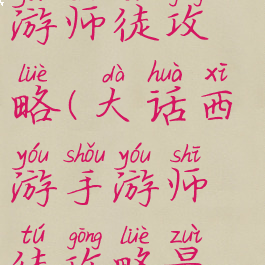 游师徒攻
lüè dà huà xī
略(大话西
yóu shǒu yóu shī
游手游师
tú gōng lüè zuì
徒攻略最